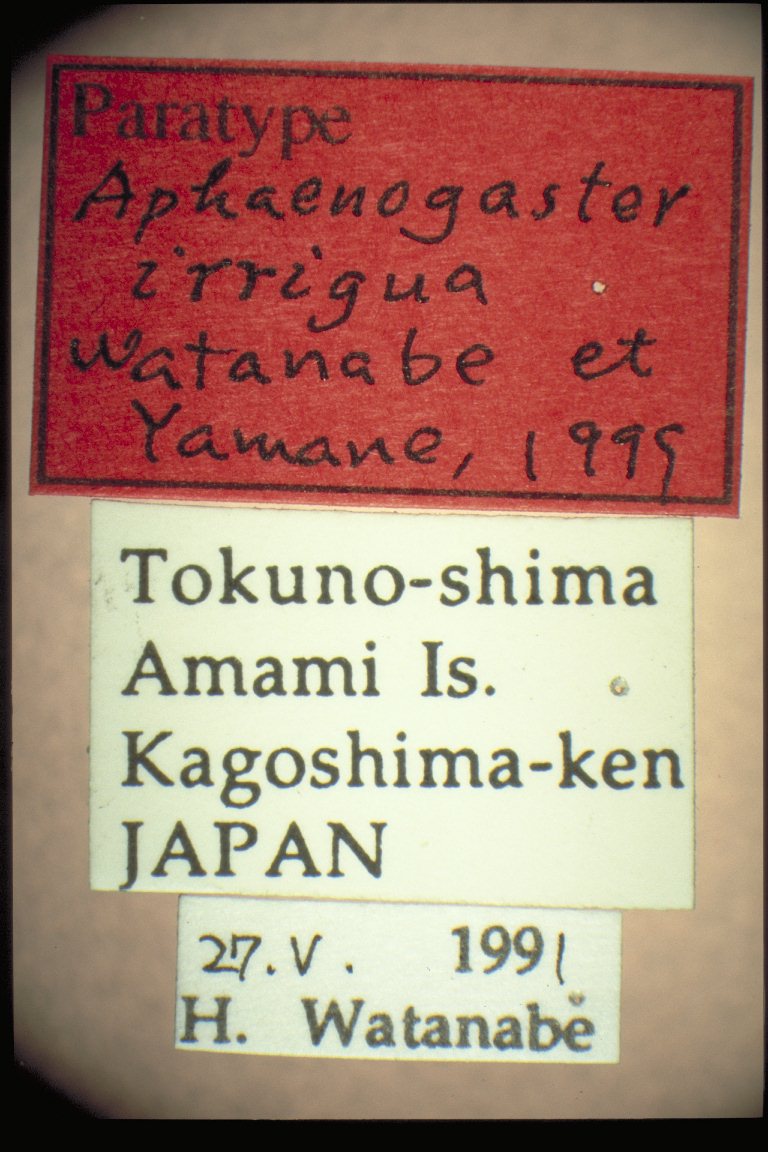 Paratype
Aphaenogaster
irrigua
Watanabe et
Yamane, 1999
Tokuno-shima
Amami Is.
Kagoshima-ken
JAPAN
27.V. 1991
H. Watanabe